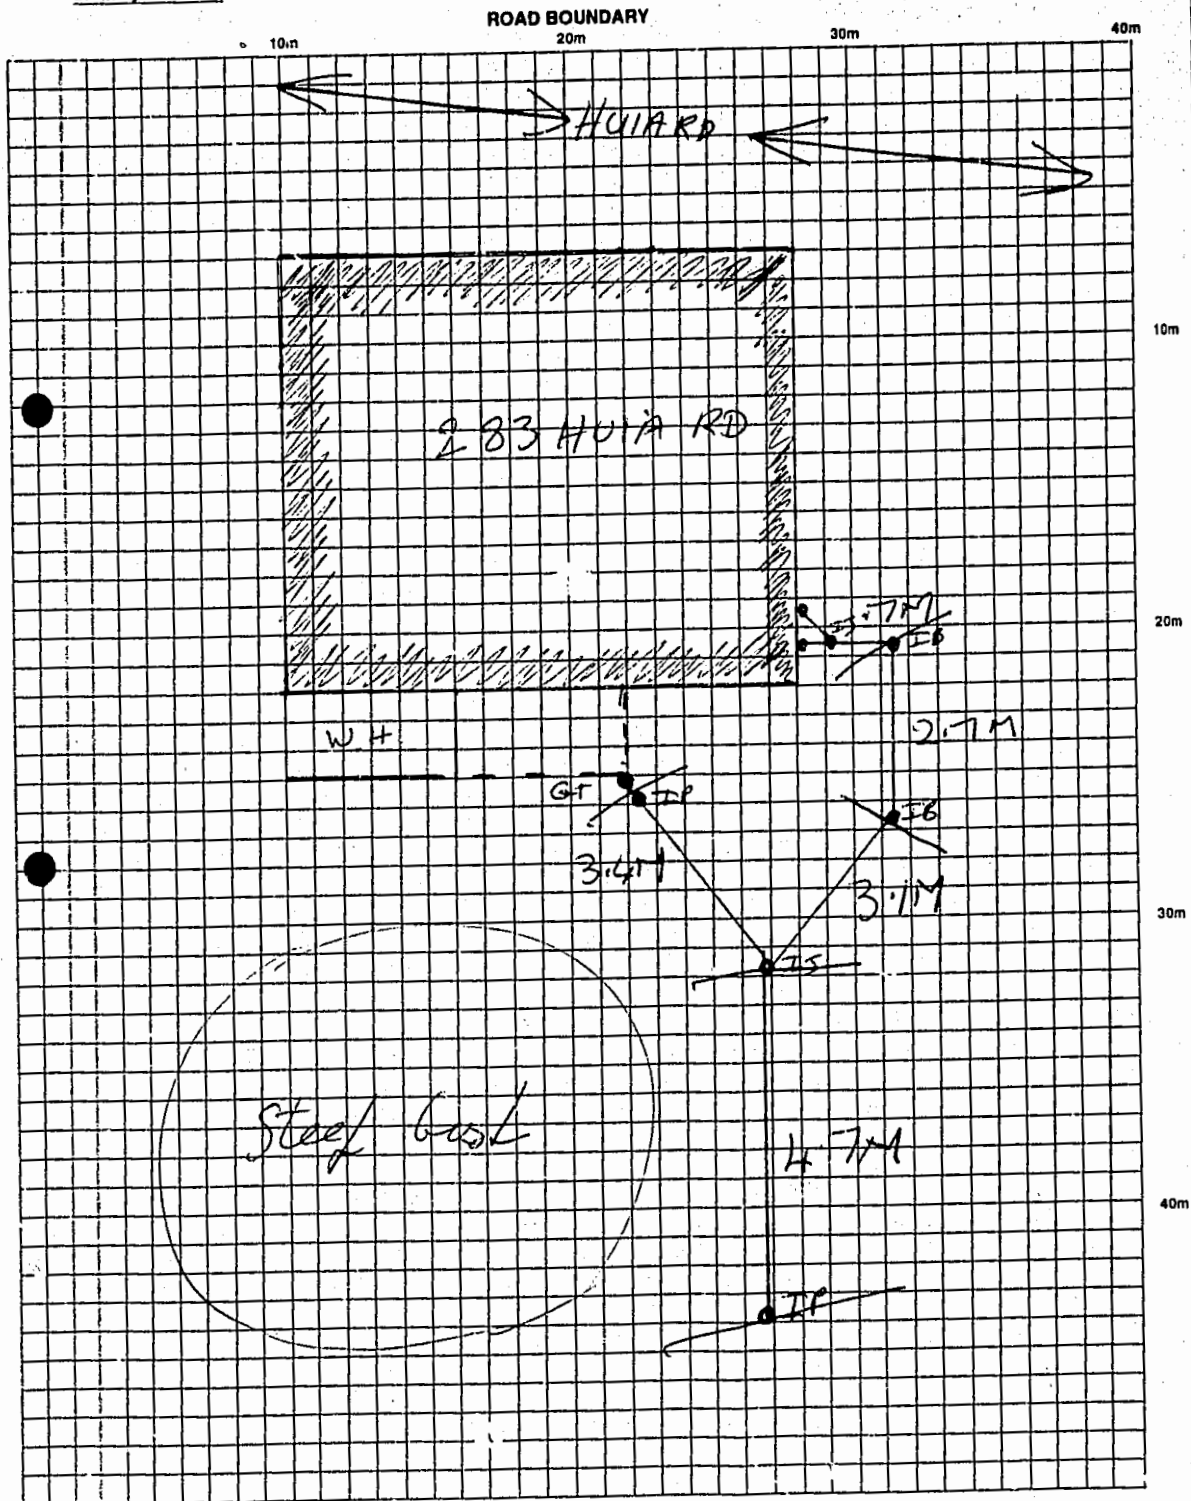 ROAD BOUNDARY
10m 20m 30m 40m
HUIA RD
10m
283 HUIA RD
.7M
20m
IB
2.7M
WH
GT IP
IB
3.4M
3.1M
30m
IJ
4.7M
40m
IP